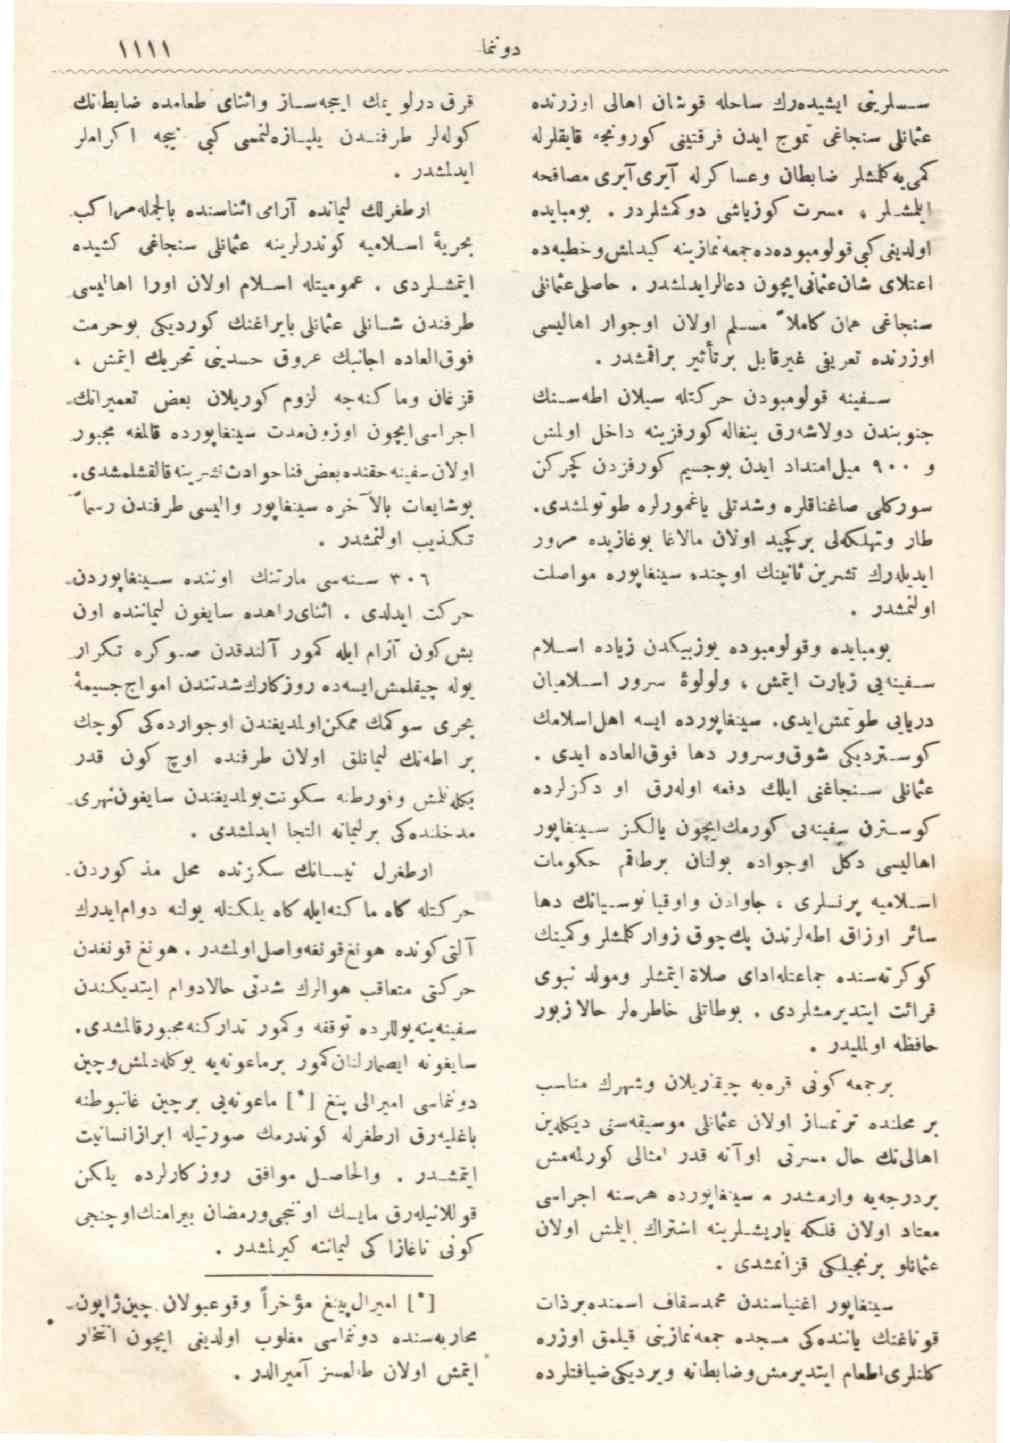 دوننما
١١١١
سسلرینی ایشیده‌رك ساحله قوشان اهالی اوزرنده
عثمانلی سنجاغی تموج ایدن فرقتینی كورونجه قایقلرله
كمی‌یه كلمشلر ضابطان وعساكرله آیری آیری مصافحه
ایلمشلر ، مسرت كوزیاشی دوكمشلردر . بومبایده
اولدیغی كبی قولومبوده‌ده جمعه نمازینه كیدلمش وخطبه‌ده
اعتلای شان عثمانی ایچون دعالر ایدلمشدر . حاصلی عثمانلی
سنجاغی همان كاملاً مسلم اولان اوجوار اهالیسی
اوزرنده تعریفی غیرقابل برتأثیر براقمشدر .
سفینه قولومبودن حركتله سیلان اطه‌سنك
جنوبندن دولاشه‌رق بنغاله كورفزینه داخل اولمش
و ٩٠٠ میل امتداد ایدن بوجسیم كورفزدن كچركن
سوركلی صاغناقلره وشدتلی یاغمورلره طوتولمشدی.
طار وتهلكه‌لی بركچید اولان مالاغا بوغازیده مرور
ایدیله‌رك تشرین ثانینك اوچنده سینغاپوره مواصلت
اولنمشدر .
بومبایده وقولومبوده یوزبیكدن زیاده اسلام
سفینه‌یی زیارت ایتمش ، ولولۀ سرور اسلامیان
دریایی طوتمش ایدی. سینغاپورده ایسه اهل اسلامك
كوستردیكی شوق وسرور دها فوق‌العاده ایدی .
عثمانلی سنجاغنی ایلك دفعه اوله‌رق او دكزلرده
كوسترن سفینه‌یی كورمك ایچون یالكز سینغاپور
اهالیسی دكل اوجواده بولنان برطاقم حكومات
اسلامیه پرنسلری ، جاوادن واوقیانوسیانك دها
سائر اوزاق اطه‌لرندن پك چوق زوار كلمشلر وكمینك
كوكرته‌سنده جماعتله ادای صلاة ایتمشلر ومولد نبوی
قرائت ایتدیرمشلردی . بوطاتلی خاطره‌لر حالا زیور
حافظه اولملیدر .
برجمعه كونی قره‌یه چیقریلان وشهرك مناسب
بر محلنده ترنمساز اولان عثمانلی موسیقه‌سنی دیكلەین
اهالی‌نك حال مسرتی اوآنه قدر امثالی كورلمه‌مش
بردرجه‌یه وارمشدر . سینغاپورده هرسنه اجراسی
معتاد اولان فلكه یاریشلرینه اشتراك ایلمش اولان
عثمانلو برنجیلكی قزانمشدی .
سینغاپور اغنیاسندن محمدسقاف اسمنده برذات
قوناغنك یاننده‌كی مسجده جمعه نمازینی قیلمق اوزره
كلنلری اطعام ایتدیرمش وضابطانه ویردیكی ضیافتلرده
قرق درلو یمك اییجه‌ساز واثنای طعامده ضابطانك
كوله‌لر طرفندن یلپازه‌لنمسی كبی نیجه اكراملر
ایدلمشدر .
ارطغرلك لیمانده آرامی اثناسنده بالجمله مراكب
بحریۀ اسلامیه كوندرلرینه عثمانلی سنجاغی كشیده
ایتمشلردی . عمومیتله اسلام اولان اورا اهالیسی
طرفندن شانلی عثمانلی بایراغنك كوردیكی بوحرمت
فوق‌العاده اجانبك عروق حسدینی تحریك ایتمش ،
قزغان وماكنه‌جه لزوم كوریلان بعض تعمیراتك
اجراسی ایچون اوزون مدت سینغاپورده قالمغه مجبور
اولان سفینه حقنده بعض فنا حوادث نشرینه قالقشلمشدی.
بوشایعات بالآخره سینغاپور والیسی طرفندن رسماً
تكذیب اولنمشدر .
٣٠٦ سنه‌سی مارتنك اوننده سینغاپوردن
حركت ایدلدی . اثنای راهده سایغون لیماننده اون
بش كون آرام ایله كمور آلندقدن صوكره تكرار
یوله چیقلمش ایسه‌ده روزكارك شدتندن امواج جسیمۀ
بحری سوكمك ممكن اولمدیغندن اوجوارده‌كی كوچك
بر اطه‌نك لیمانلق اولان طرفنده اوچ كون قدر
بكله‌نلمش وفورطنه سكونت بولمدیغندن سایغون نهری
مدخلنده‌كی برلیمانه التجا ایدلمشدی .
ارطغرل نیسانك سكزنده محل مذكوردن
حركتله كاه ماكنه ایله كاه یلكنله یولنه دوام ایدرك
آلتی كونده هونغ قونغه واصل اولمشدر . هونغ قونغدن
حركتی متعاقب هوالرك شدتی حالا دوام ایتدیكندن
سفینه ینه یوللرده توقفه وكمور تداركنه مجبور قالمشدی.
سایغونه ایصمارلنان كمور برماعونه‌یه یوكله‌دلمش وچین
دوننماسی امیرالی پنغ [*] ماعونه‌یی برچین غانبوطنه
باغلیه‌رق ارطغرله كوندرمك صورتیله ابراز انسانیت
ایتمشدر . والحاصل موافق روزكارلرده یلكن
قوللانیله‌رق مایسك اوننجی ورمضان بیرامنك اوچنجی
كونی ناغازاكی لیماننه كیرلمشدر .
[*] امیرال پینغ مؤخراً وقوعبولان چین ژاپون
محاربه‌سنده دوننماسی مغلوب اولدیغی ایچون انتحار
ایتمش اولان طالعسز آمیرالدر .